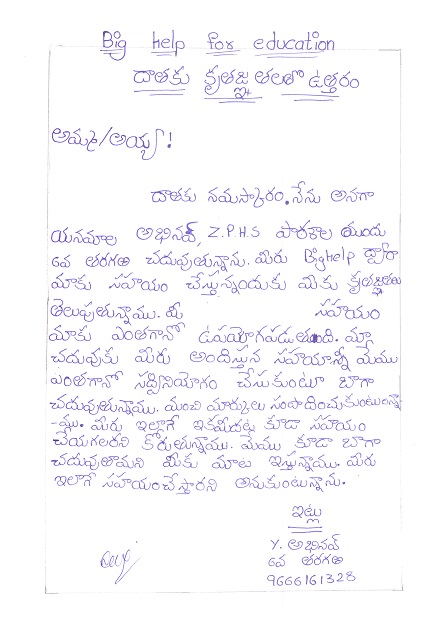 Big help for education
దాతకు కృతజ్ఞతలతో ఉత్తరం
అమ్మ/అయ్య!
దాతకు నమస్కారం. నేను అనగా
యనమాల అభినవ్, Z.P.H.S పాఠశాల యందు
6వ తరగతి చదువుతున్నాను. మీరు Bighelp ద్వారా
మాకు సహయం చేస్తున్నందుకు మీకు కృతజ్ఞతలు
తెలుపుతున్నాము. మీ సహయం
మాకు ఎంతగానో ఉపయోగపడుతుంది. మా
చదువుకు మీరు అందిస్తున సహయాన్ని మేము
ఎంతగానో సద్వినియోగం చేసుకుంటూ బాగా
చదువుతున్నాము. మంచి మార్కులు సంపాదించుకుంటున్నా
-ము. మీరు ఇలాగే ఇకమీదట కూడా సహయం
చేయగలరని కోరుతున్నాము. మేము కూడా బాగా
చదువుతామని మీకు మాట ఇస్తున్నాము. మీరు
ఇలాగే సహయంచేస్తారని అనుకుంటున్నాను.
ఇట్లు
Y. అభినవ్
6వ తరగతి
9666161328